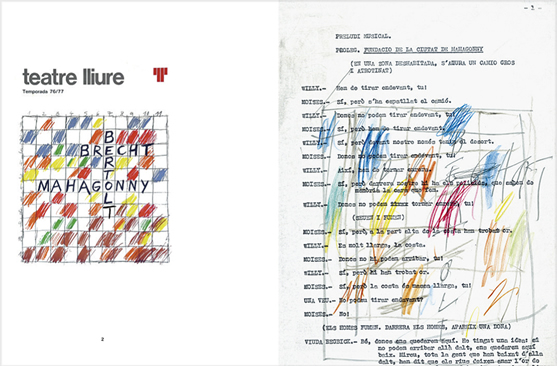 teatre lliure
Temporada 76/77
1 2 3 4 5 6 7 8 9 10 11
BRECHT
BERTOLT
MAHAGONNY
2
- 1 -
PRELUDI MUSICAL.
PROLEG. FUNDACIO DE LA CIUTAT DE MAHAGONNY
(EN UNA ZONA DESHABITADA, S'ATURA UN CAMIO GROS
I ATROTINAT)
WILLY.- Hem de tirar endevant, tu!
MOISES.- Sí, però s'ha espatllat el camió.
WILLY.- Doncs no podem tirar endevant.
MOISES.- Sí, però hem de tirar endevant.
WILLY.- Sí, però devant nostre només tenim el desert.
MOISES.- Doncs no podem tirar endevant, tu!
WILLY.- Així, hem de tornar enrera.
MOISES.- Sí, però darrera nostre hi ha els policies, que saben de
memòria la cara que fem.
WILLY.- Doncs no podem tornar enrera, tu!
(SEUEN I FUMEN)
MOISES.- Sí, però, a la part alta de la costa han trobat or.
WILLY.- Es molt llarga, la costa.
MOISES.- Doncs no hi podem arribar, tu!
WILLY.- Sí, però hi han trobat or.
MOISES.- Sí, però la costa és massa llarga, tu!
UNA VEU.- No podeu tirar endevant?
MOISES.- No!
(ELS HOMES FUMEN. DARRERA ELS HOMES, APAREIX UNA DONA)
VIUDA BEGBICK.- Bé, doncs ens quedarem aquí. He tingut una idea: si
no podem arribar allà dalt, ens quedarem aquí
baix. Mireu, tota la gent que han baixat d'allà
dalt, han dit que els rius deixen anar l'or de